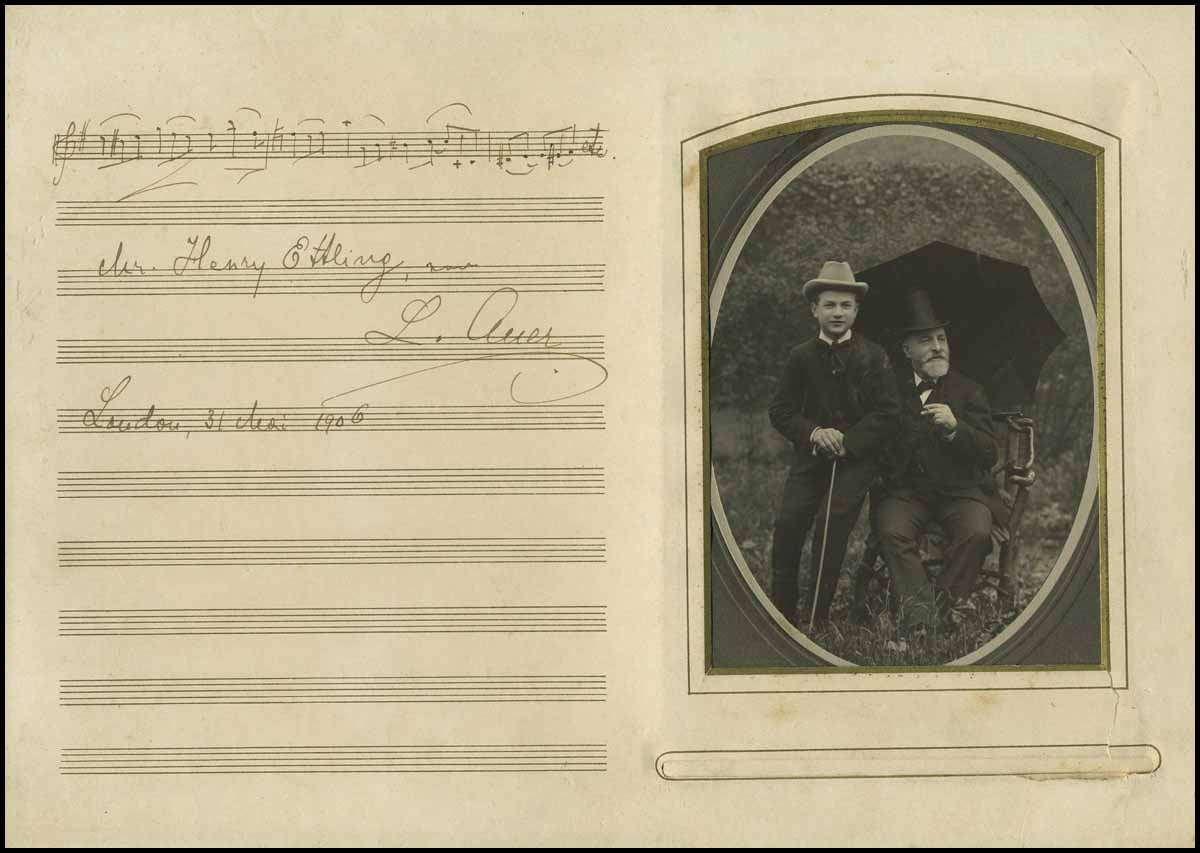 etc.
Mr. Henry Ettling,
L. Auer
London, 31 Mai 1906